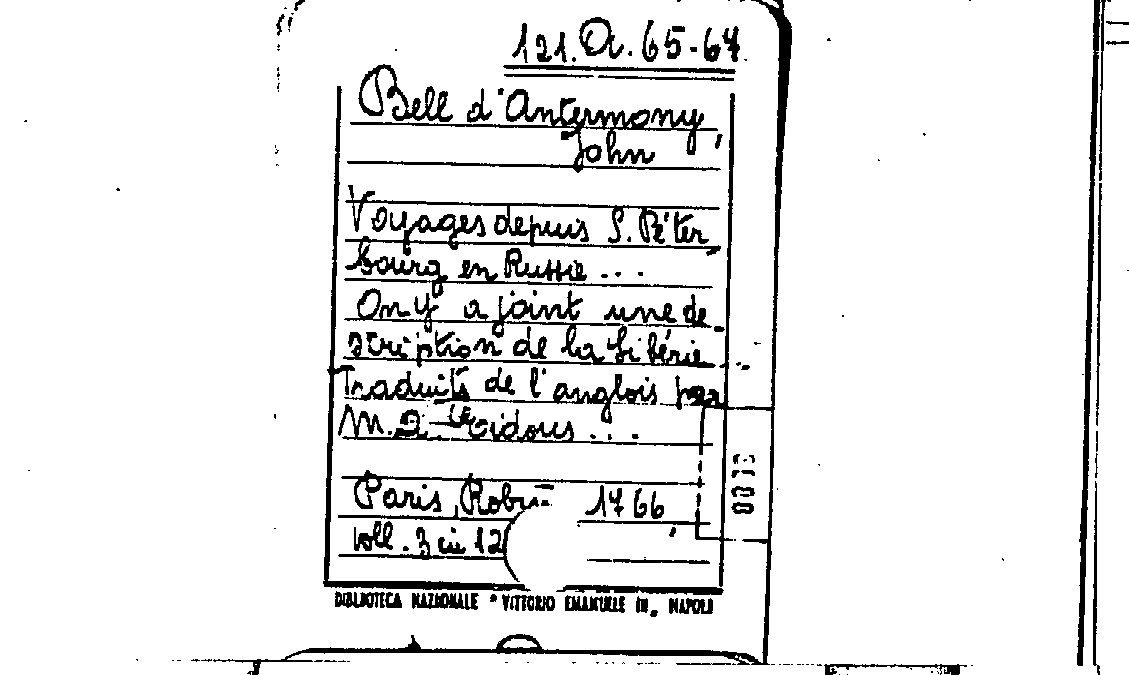 121.A.65-67
Bell d'Antermony,
John
Voyages depuis S. Péter
bourg en Russie ...
On y a joint une de
scription de la Sibérie
Traduits de l'anglois par
M.
Eidous ...
Paris, Robin 1766,
voll. 3 in 12
BIBLIOTECA NAZIONALE "VITTORIO EMANUELE III" NAPOLI